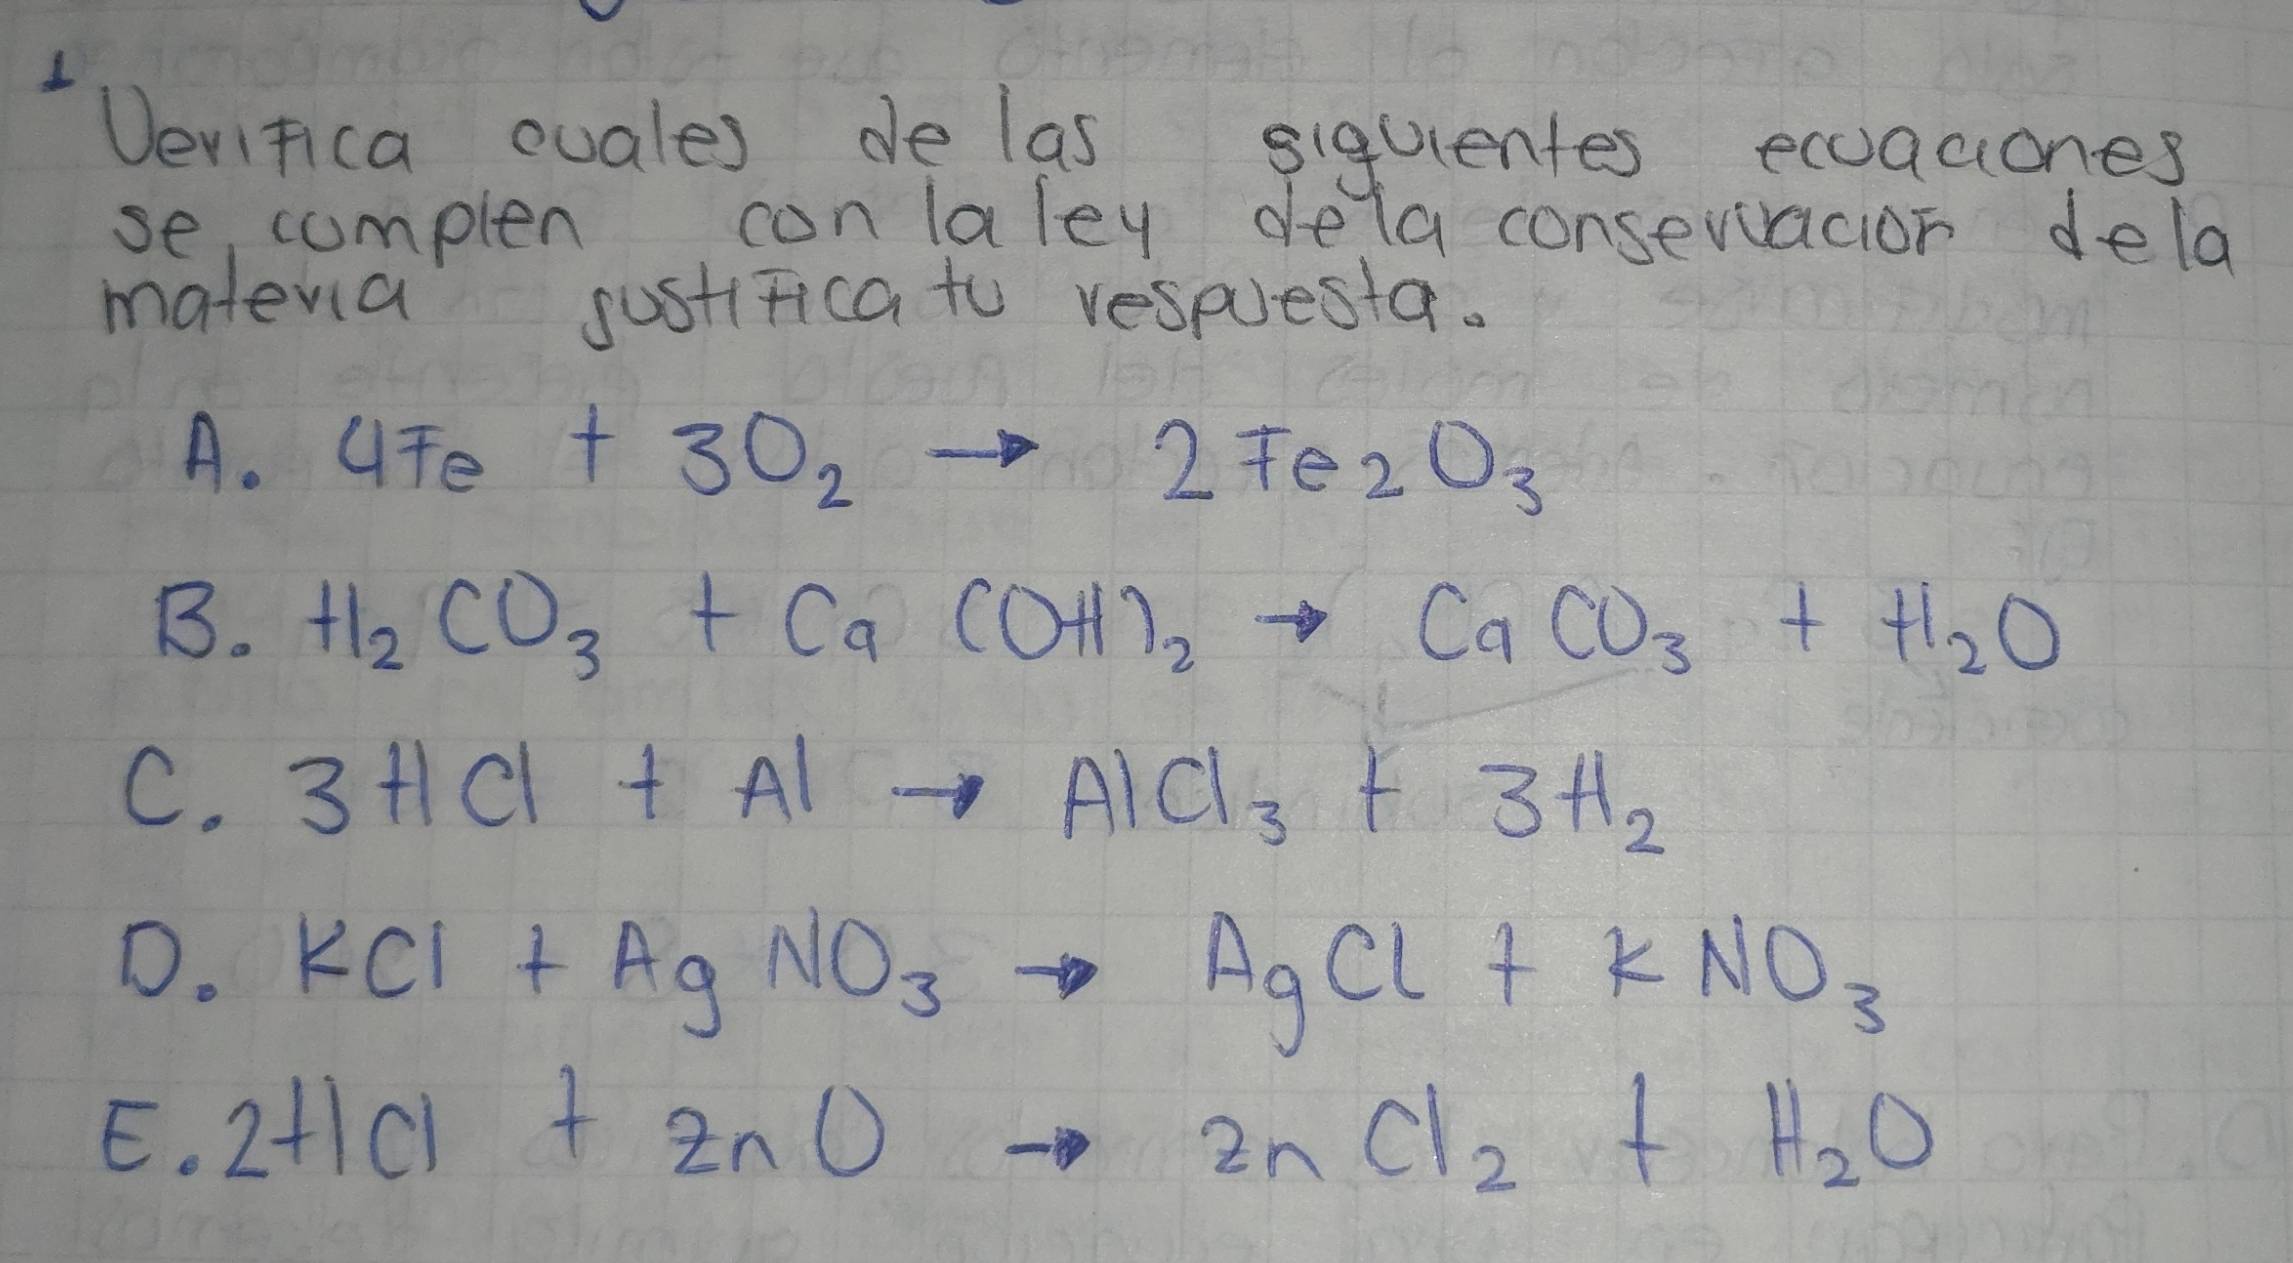 1
Verifica cuales de las siguientes ecuaciones
se cumplen con la ley de la conservacion de la
materia justifica tu respuesta.
A. 4Fe + 3O₂ → 2Fe₂O₃
B. H₂CO₃ + Ca(OH)₂ → CaCO₃ + H₂O
C. 3HCl + Al → AlCl₃ + 3H₂
D. KCl + AgNO₃ → AgCl + KNO₃
E. 2HCl + ZnO → ZnCl₂ + H₂O